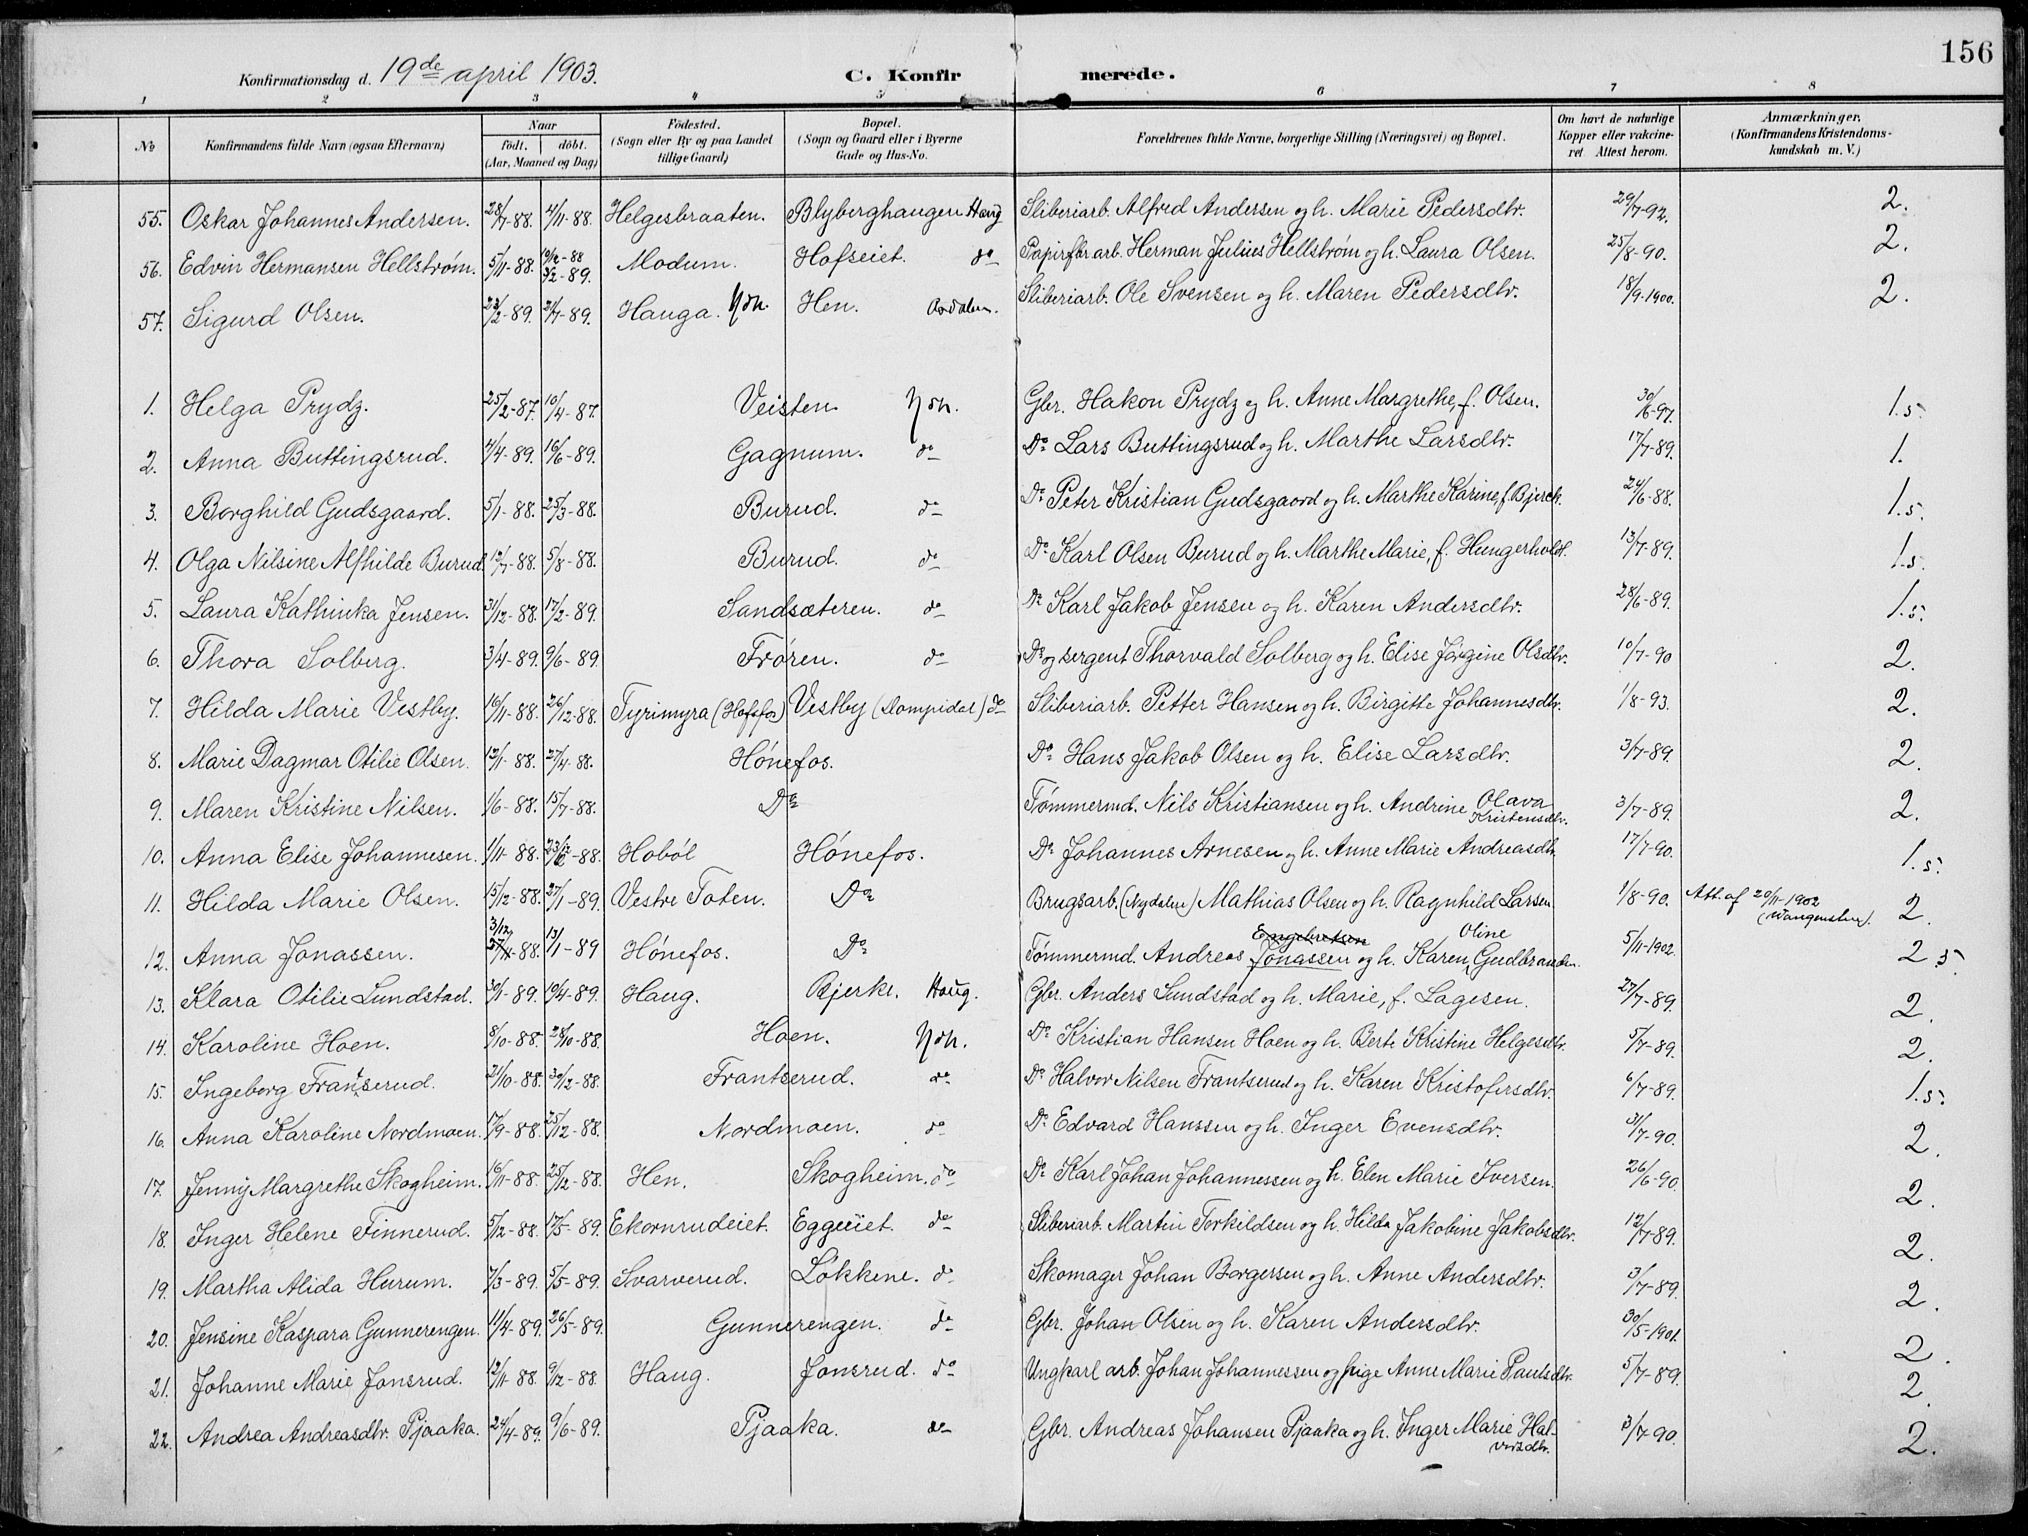 156
Konfirmationsdag d. 19de april 1903. C. Konfirmerede.
1 2 3 4 5 6 7 8
No Konfirmandens fulde Navn (ogsaa Efternavn) Naar født. døbt. (Aar, Maaned og Dag) Fødested. (Sogn eller By og paa Landet tillige Gaard) Bopæl. (Sogn og Gaard eller i Byerne Gade og Hus-No. Forældrenes fulde Navne, borgerlige Stilling (Næringsvei) og Bopæl. Om havt de naturlige Kopper eller vakcineret Attest herom. Anmærkninger. (Konfirmandens Kristendomskundskab m. V.)
55. Oskar Johannes Andersen. 28/7-88. 4/11-88. Helgesbraaten. Blyberghaugen Haug Sliberiarb. Alfred Andersen og h. Marie Pedersdtr. 29/7-92. 2.
56. Edvin Hermansen Hellstrøm. 5/11-88. 3/2-89. Modum. Hofseiet. do Papirfbr arb. Herman Julius Hellstrøm og h. Laura Olsen. 25/8-90. 2.
57. Sigurd Olsen. 23/2-89. 21/7-89. Hauga. Ndh. Hen. Aadalen. Sliberiarb. Ole Svensen og h. Maren Pedersdtr. 18/9-1900. 2.
1. Helga Prydz. 25/2-87. 10/4-87. Veisten. Ndh. Gbr. Hakon Prydz og h. Anne Margrethe, f. Olsen. 30/6-97. 1.5.
2. Anna Buttingsrud. 4/4-89. 16/6-89. Gagnum. do Do Lars Buttingsrud og h. Marthe Larsdtr. 17/7-89. 1.
3. Borghild Gudsgaard. 5/1-88. 25/3-88. Burud. do Do Peter Kristian Gudsgaard og h. Marthe Karine, f. Bjerck. 24/6-88. 1.5.
4. Olga Nilsine Alfhilde Burud. 12/7-88. 5/8-88. Burud. do Do Karl Olsen Burud og h. Marthe Marie, f. Hungerholdt. 13/7-89. 1.5.
5. Laura Kathinka Jensen. 31/12-88. 17/2-89. Sandsæteren. do Do Karl Jakob Jensen og h. Karen Andersdtr. 28/6-89. 1.5.
6. Thora Solberg. 3/4-89. 9/6-89. Frøren. do Do og sergent Thorvald Solberg og h. Elise Jørgine Olsdtr. 10/7-90 2.
7. Hilda Marie Vestby. 16/11-88. 26/12-88. Tyrimyra (Hofsfos) Vestby (Dompidal) do Sliberiarb. Petter Hansen og h. Birgitte Johannesdtr. 1/8-93. 2.
8. Marie Dagmar Otilie Olsen. 12/1-88. 27/4-88. Hønefos. Do Hans Jakob Olsen og h. Elise Larsdtr. 3/7-89. 2.
9. Maren Kristine Nilsen. 1/6-88. 15/7-88. Do Tømmermd. Nils Kristiansen og h. Andrine Olava Kristensdtr. 3/7-89. 2.
10. Anna Elise Johannesen. 1/11-88. 23/12-88. Hobøl Hønefos. Do Johannes Arnesen og h. Anne Marie Andreasdtr. 17/7-90. 1.5.
11. Hilda Marie Olsen. 15/12-88. 27/1-89. Vestre Toten. Do Brugsarb. (Nydalen) Mathias Olsen og h. Ragnhild Larsen 1/8-90. Att. af 20/11-1902 (Wangensteen). 2.
12. Anna Jonassen. 3/12 27/11-88. 13/1-89 Hønefos. Do Tømmermd. Andreas Engebretsen Jonassen og h. Karen Oline Gudbrandsen. 5/11-1902. 2.5.
13. Klara Otilie Lundstad. 30/1-89. 19/4-89. Haug. Bjerke. Haug. Gbr. Anders Lundstad og h. Marie, f. Lagesen. 27/7-89. 2.
14. Karoline Hoen. 8/10-88. 28/10-88. Hoen. Ndh. Do Kristian Hansen Hoen og h. Berte Kristine Helgesdtr. 5/7-89. 2.
15. Ingeborg Frantserud. 2/10-88. 30/12-88. Frantserud. do Do Halvor Nilsen Frantserud og h. Karen Kristofersdtr. 6/7-89. 1.5.
16. Anna Karoline Nordmoen. 17/9-88. 25/12-88. Nordmoen. do Do Edvard Hanssen og h. Inger Evensdtr. 31/7-90. 2.
17. Jenny Margrethe Skogheim. 16/11-88. 25/12-88. Hen. Skogheim. do Do Karl Johan Johannessen og h. Elen Marie Iversen. 26/6-90. 2.
18. Inger Helene Finnerud. 5/12-88. 17/5-89. Ekornrudeiet. Eggeeiet. do Sliberiarb. Martin Torkildsen og h. Hilda Jakobine Jakobsdtr. 12/7-89. 2.
19. Martha Alida Hurum. 7/3-89. 5/5-89. Svarverud. Løkkene. do Skomager Johan Borgersen og h. Anne Andersdtr. 3/7-89. 2.
20. Jensine Kaspara Gunnerengen. 11/4-89. 26/5-89. Gunnerengen. do Gbr. Johan Olsen og h. Karen Andersdtr. 30/5-1901. 2.
21. Johanne Marie Jonsrud. 12/11-88. 9/12-88. Haug. Jonsrud. do Ungkarl arb. Johan Johannessen og pige Anne Marie Paulsdtr. 5/7-89. 2.
22. Andrea Andreasdtr. Pjaaka. 24/4-89. 9/6-89. Pjaaka. do Gbr. Andreas Johansen Pjaaka og h. Inger Marie Halvorsdtr. 3/7-90. 2.